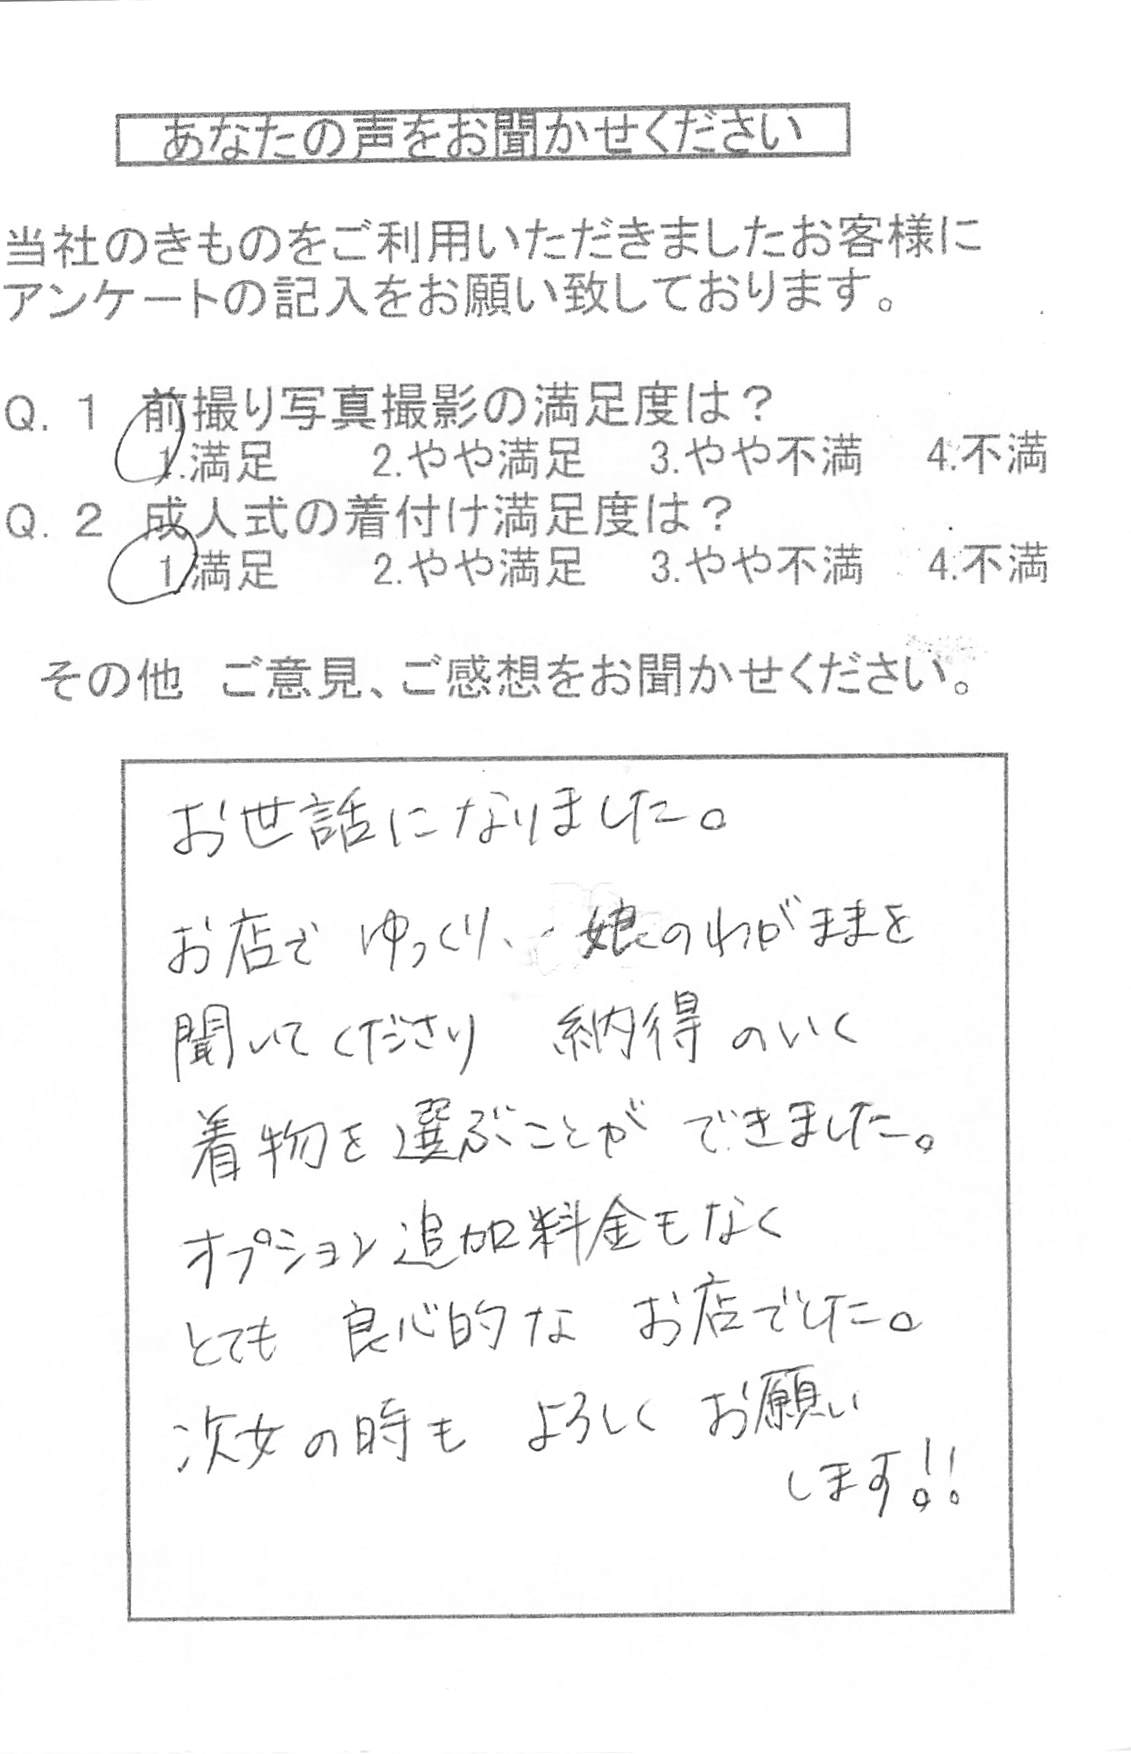 あなたの声をお聞かせください
当社のきものをご利用いただきましたお客様に
アンケートの記入をお願い致しております。
Q.1 前撮り写真撮影の満足度は？
1.満足 2.やや満足 3.やや不満 4.不満
Q.2 成人式の着付け満足度は？
1.満足 2.やや満足 3.やや不満 4.不満
その他 ご意見、ご感想をお聞かせください。
お世話になりました。
お店で ゆっくり、娘のわがままを
聞いてくださり 納得のいく
着物を選ぶことが できました。
オプション追加料金もなく
とても 良心的な お店でした。
次女の時も よろしく お願い
します!!